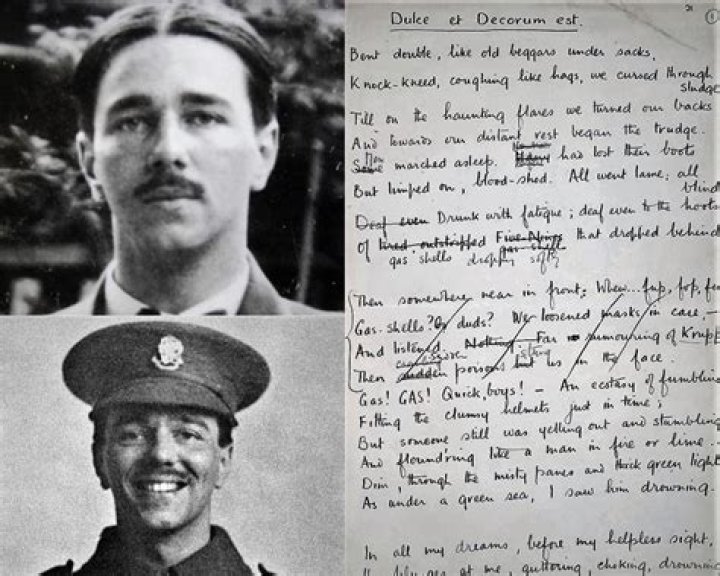 Dulce et Decorum est.
Bent double, like old beggars under sacks,
Knock-kneed, coughing like hags, we cursed through
sludge
Till on the haunting flares we turned our backs
And towards our distant rest began the trudge.
Some marched asleep. Many had lost their boots
But limped on, blood-shod. All went lame; all
blind
Deaf even Drunk with fatigue; deaf even to the hoots
Of tired, outstripped Five-Nines that dropped behind
gas shells dropping softly
Then somewhere near in front: Whew... fup, fop, fup
Gas-shells? Or duds? We loosened masks in case, —
And listened. Nothing. Far rumouring of Krupp
Then sudden poisons hit us in the face.
Gas! GAS! Quick, boys! — An ecstasy of fumbling
Fitting the clumsy helmets just in time;
But someone still was yelling out and stumbling
And flound'ring like a man in fire or lime. —
Dim, through the misty panes and thick green light
As under a green sea, I saw him drowning.
In all my dreams, before my helpless sight,
at me, guttering, choking, drowning